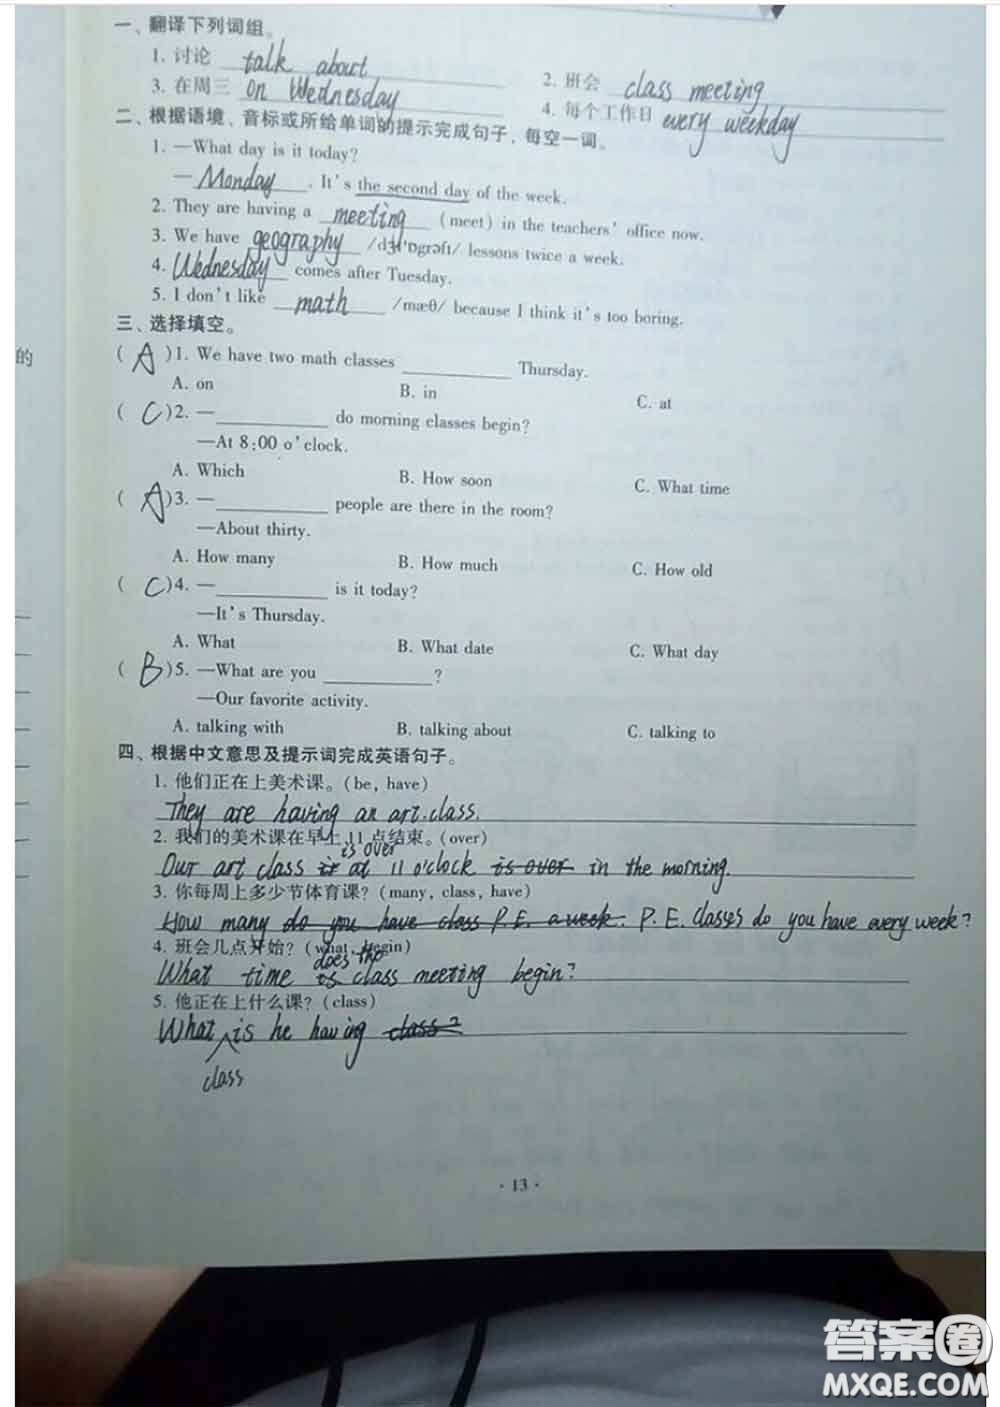 一、翻译下列词组。
1. 讨论 talk about
2. 班会 class meeting
3. 在周三 on Wednesday
4. 每个工作日 every weekday
二、根据语境、音标或所给单词的提示完成句子，每空一词。
1. —What day is it today?
— Monday . It's the second day of the week.
2. They are having a meeting (meet) in the teachers' office now.
3. We have geography lessons twice a week.
4. Wednesday comes after Tuesday.
5. I don't like math /mæθ/ because I think it's too boring.
三、选择填空。
的
( A )1. We have two math classes ________ Thursday.
A. on B. in C. at
( C )2. —________ do morning classes begin?
—At 8:00 o'clock.
A. Which B. How soon C. What time
( A )3. —________ people are there in the room?
—About thirty.
A. How many B. How much C. How old
( C )4. —________ is it today?
—It's Thursday.
A. What B. What date C. What day
( B )5. —What are you ________?
—Our favorite activity.
A. talking with B. talking about C. talking to
四、根据中文意思及提示词完成英语句子。
1. 他们正在上美术课。(be, have)
They are having an art class.
2. 我们的美术课在早上 11 点结束。(over)
is over
Our art class at 11 o'clock is over in the morning.
3. 你每周上多少节体育课? (many, class, have)
How many do you have class P.E. a week. P.E. classes do you have every week?
4. 班会几点开始? (what, begin)
does the
What time is class meeting begin?
5. 他正在上什么课? (class)
What is he having class?
class
· 13 ·
答案圈
MXQE.COM